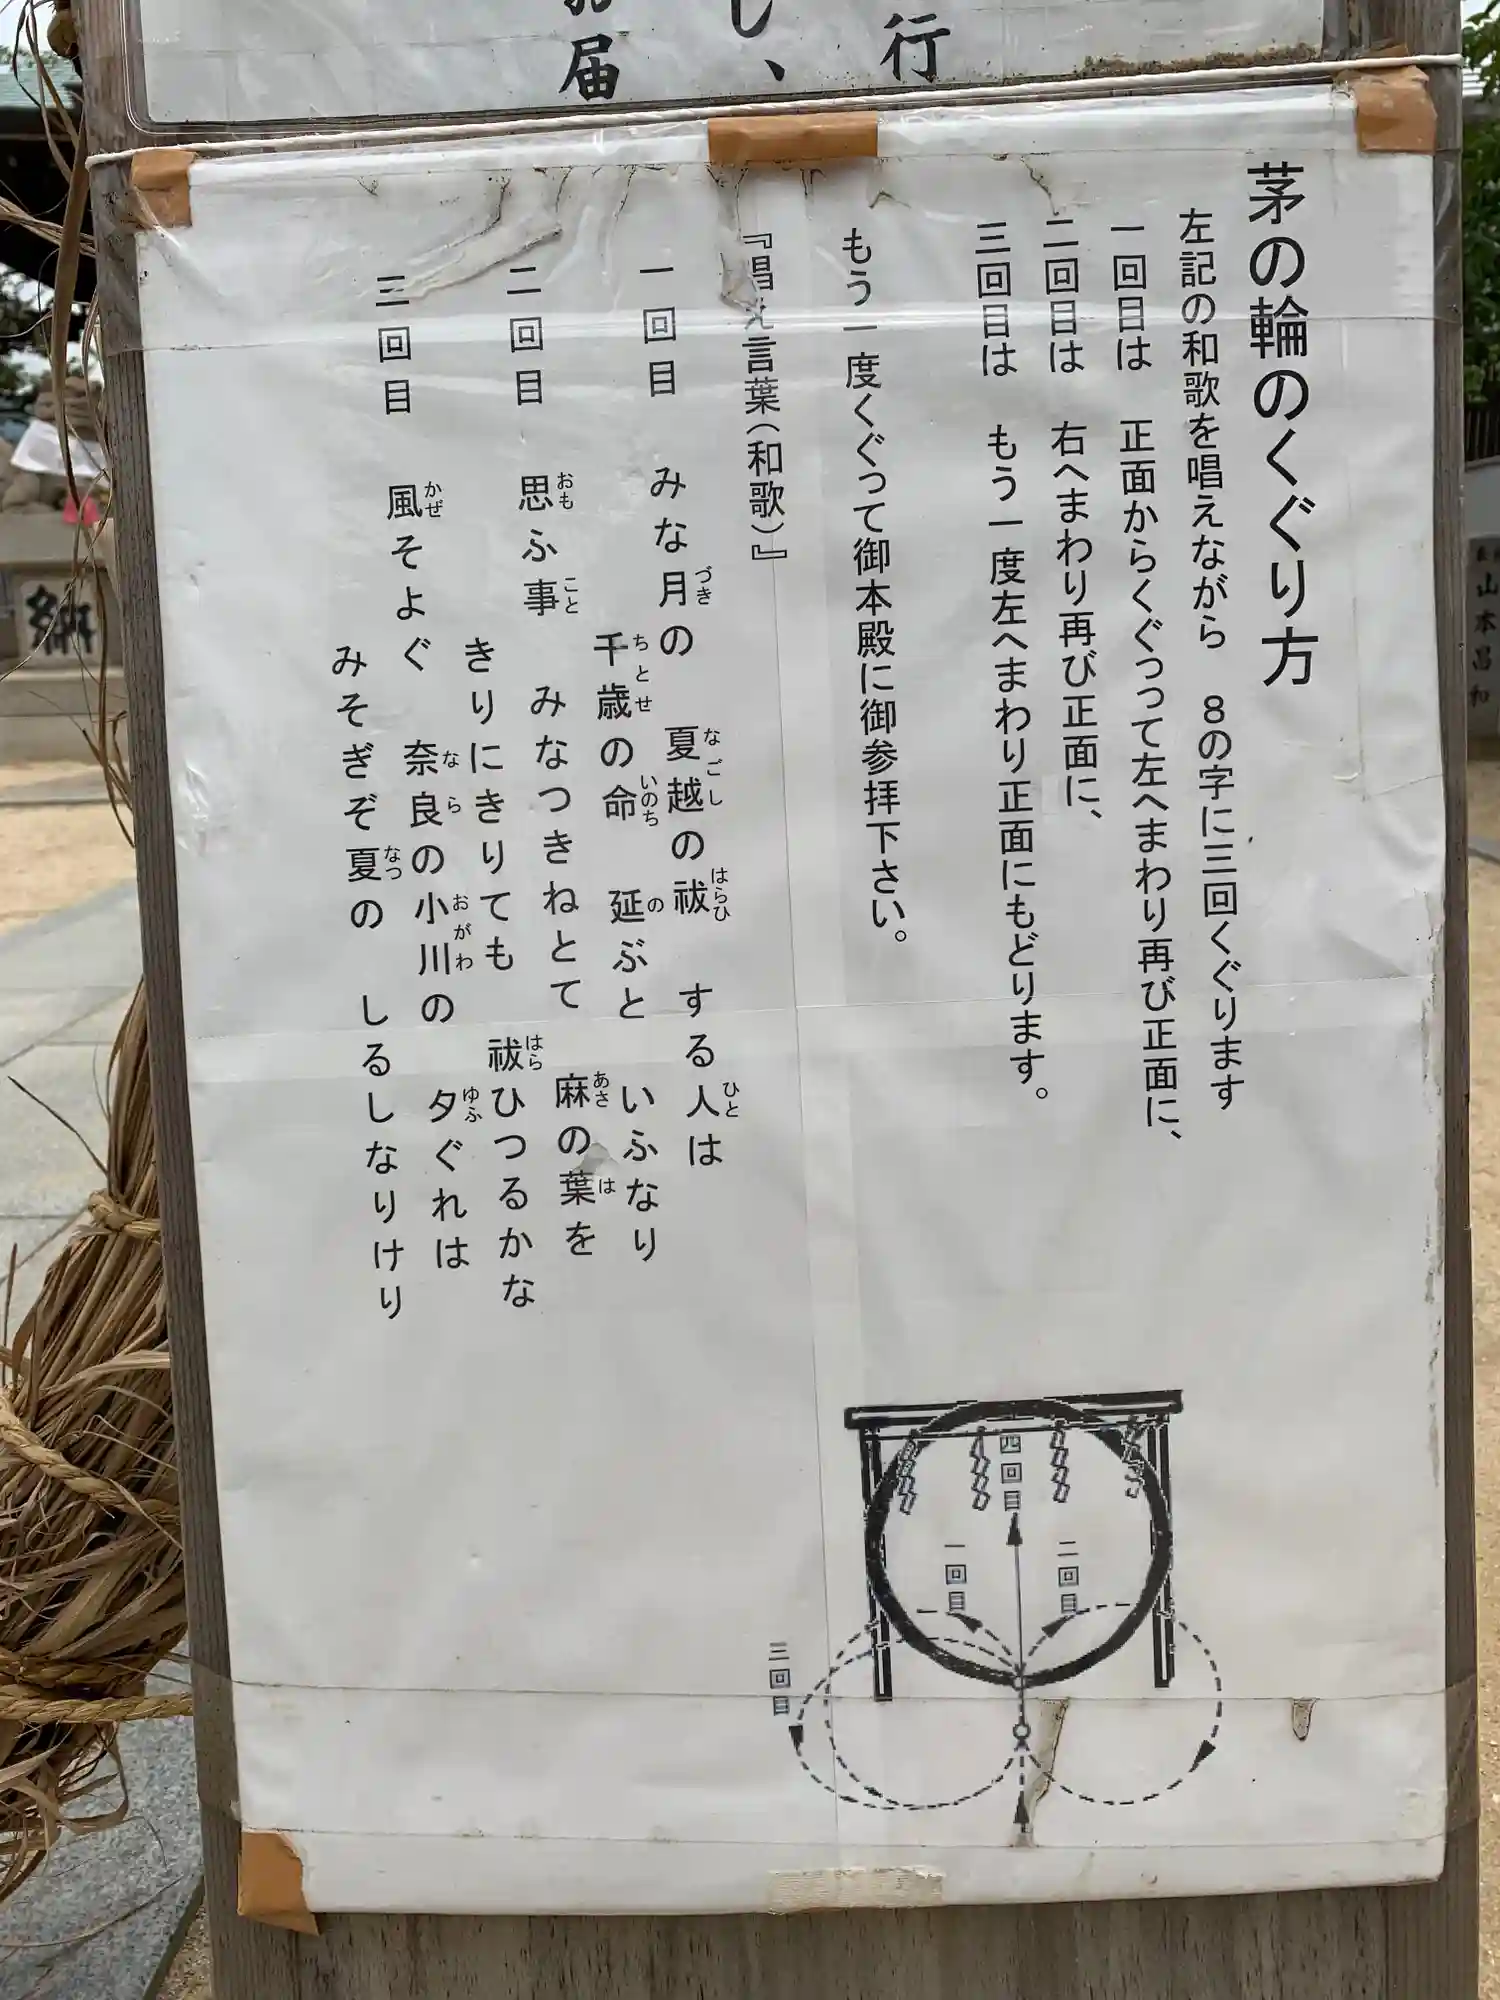 行
し、
お届
茅の輪のくぐり方
左記の和歌を唱えながら 8の字に三回くぐります
一回目は 正面からくぐつて左へまわり再び正面に、
二回目は 右へまわり再び正面に、
三回目は もう一度左へまわり正面にもどります。
もう一度くぐって御本殿に御参拝下さい。
『唱え言葉(和歌)』
一回目 みな月の 夏越の祓 する人は
づき なごし はらひ ひと
千歳の命 延ぶと いふなり
ちとせ いのち の
二回目 思ふ事 みなつきねとて 麻の葉を
おも こと あさ は
きりにきりても 祓ひつるかな
はら
三回目 風そよぐ 奈良の小川の 夕ぐれは
かぜ なら おがわ ゆふ
みそぎぞ夏の しるしなりけり
なつ
四回目
二回目
一回目
三回目
納
山本昌和